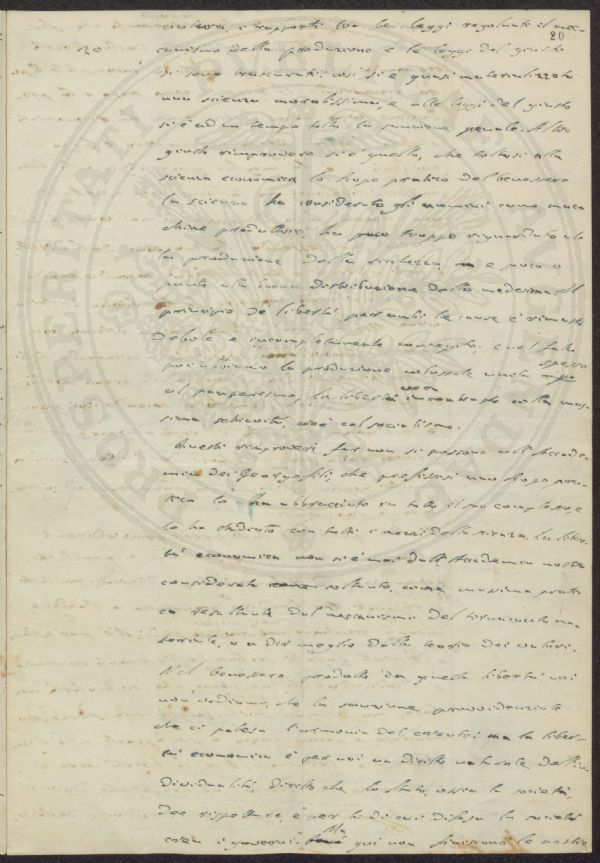 20
20
i rapporti tra le leggi regolanti il mec-
canismo della produzione e le leggi del giusto
si sono trascurati: così si è quasi materializzata
una scienza moralissima, e alle leggi del giusto
si è ad un tempo tolta la sanzione penale. Altro
giusto rimprovero si è quello, che toltosi alla
scienza economica lo scopo pratico del benessere
la scienza ha considerato gli uomini come mac
chine produttrici, ha troppo riguardato al
la produzione della ricchezza, e poco o
punto alla distribuzione della medesima. Il
principio de libertà per tali cause è rimasto
debole e incompletamente e nel fatto
la produzione colossale unita spesso
al pauperismo, la libertà in contrasto colla mas-
sima schiavitù, cioè col socialismo.
Questi rimproveri far non si possono all'Accade-
mia dei Georgofili, che prefissasi uno scopo pra-
tico lo ha abbracciato in tutto il suo complesso, e
lo ha studiato con tutti i mezzi della scienza. La liber-
tà economica non si è mai dall'Accademia nostra
considerata soltanto, come massima prati
ca resultante dal meccanismo del tornaconto ma
teriale, o a dir meglio dalla teoria dei valori.
Nel benessere prodotto da questa libertà noi
non vediamo, che la sanzione provvidenziale
che ci palesa l'armonia del creato: ma la liber-
tà economica è per noi un diritto naturale dell'in
dividualità, diritto che lo Stato, ossia la società,
dee rispettare, e per la di cui difesa la società
crea i governi. qui non finiscono le nostre